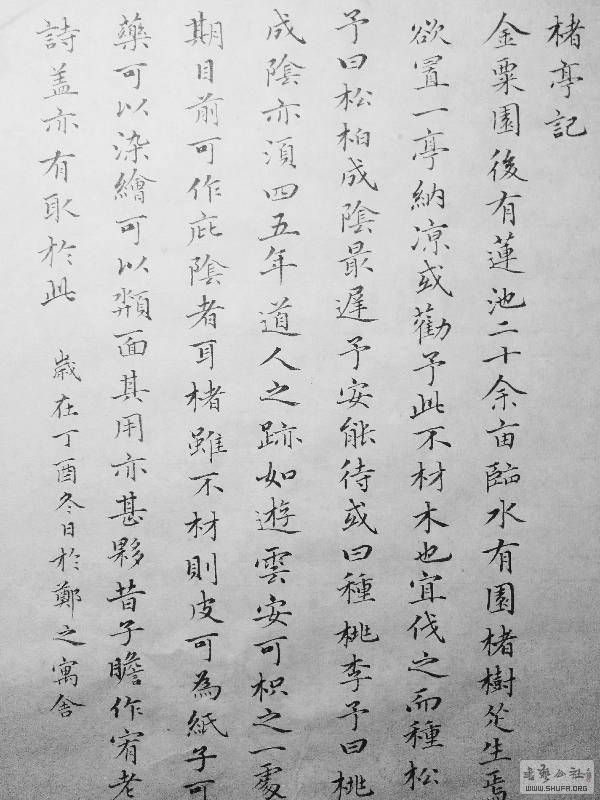 楮亭記
金粟園後有蓮池二十余亩臨水有園楮樹丛生焉
欲置一亭納凉或勸予此不材木也宜伐之而種松
予曰松柏成陰最遲予安能待或曰種桃李予曰桃
成陰亦須四五年道人之跡如遊雲安可枳之一處
期目前可作庇陰者耳楮雖不材則皮可為紙子可
藥可以染繪可以頮面其用亦甚夥昔子瞻作宥老
詩盖亦有取於此 歲在丁酉冬日於鄭之寓舍
書藝公社
WWW.SHUFA.ORG